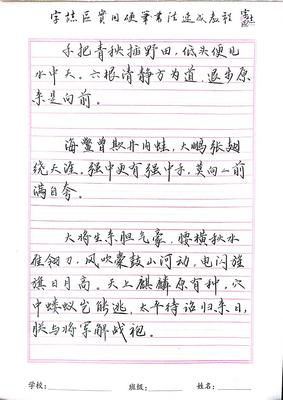 字慧臣实用硬笔书法速成教程
手把青秧插野田，低头便见
水中天。六根清静方为道，退步原
来是向前。
海鳖曾欺井内蛙，大鹏张翅
绕天涯。强中更有强中手，莫向人前
满自夸。
大将生来胆气豪，腰横秋水
雁翎刀。风吹鼍鼓山河动，电闪旌
旗日月高。天上麒麟原有种，穴
中蝼蚁岂能逃。太平待诏归来日，
朕与将军解战袍。
学校：
班级：
姓名：